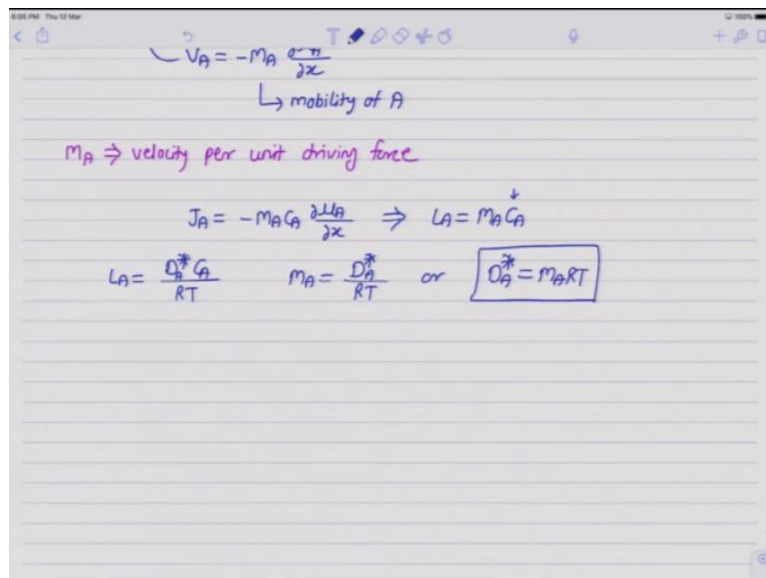 6:05 PM Thu 12 Mar 100%
V_A = -M_A ∂μ_A/∂x
↳ mobility of A
M_A ⇒ velocity per unit driving force
J_A = -M_A C_A ∂μ_A/∂x ⇒ L_A = M_A C_A
L_A = D_A* C_A / RT M_A = D_A* / RT or D_A* = M_A RT